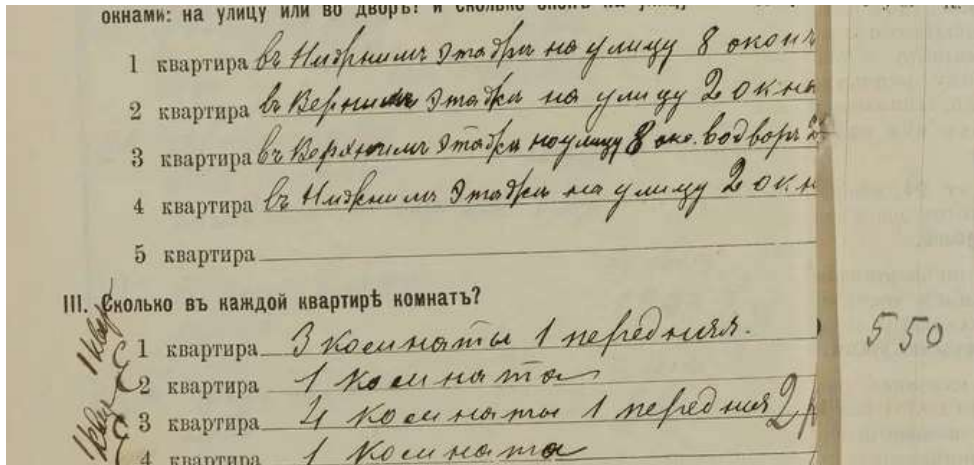 окнами: на улицу или во дворъ? и сколько оконъ на улицу
1 квартира въ Нижнимъ Этажи на улицу 8 оконъ
2 квартира въ Верхнимъ Этажи на улицу 2 окна
3 квартира въ Верхнимъ Этажи на улицу 8 око. во дворъ
4 квартира въ Нижнимъ Этажи на улицу 2 окн
5 квартира
III. Сколько въ каждой квартирѣ комнатъ?
1 квартира 3 комнаты 1 передняя.
550
2 квартира 1 комната
3 квартира 4 комнаты 1 передняя
4 квартира 1 комната
1 квар
1 квар